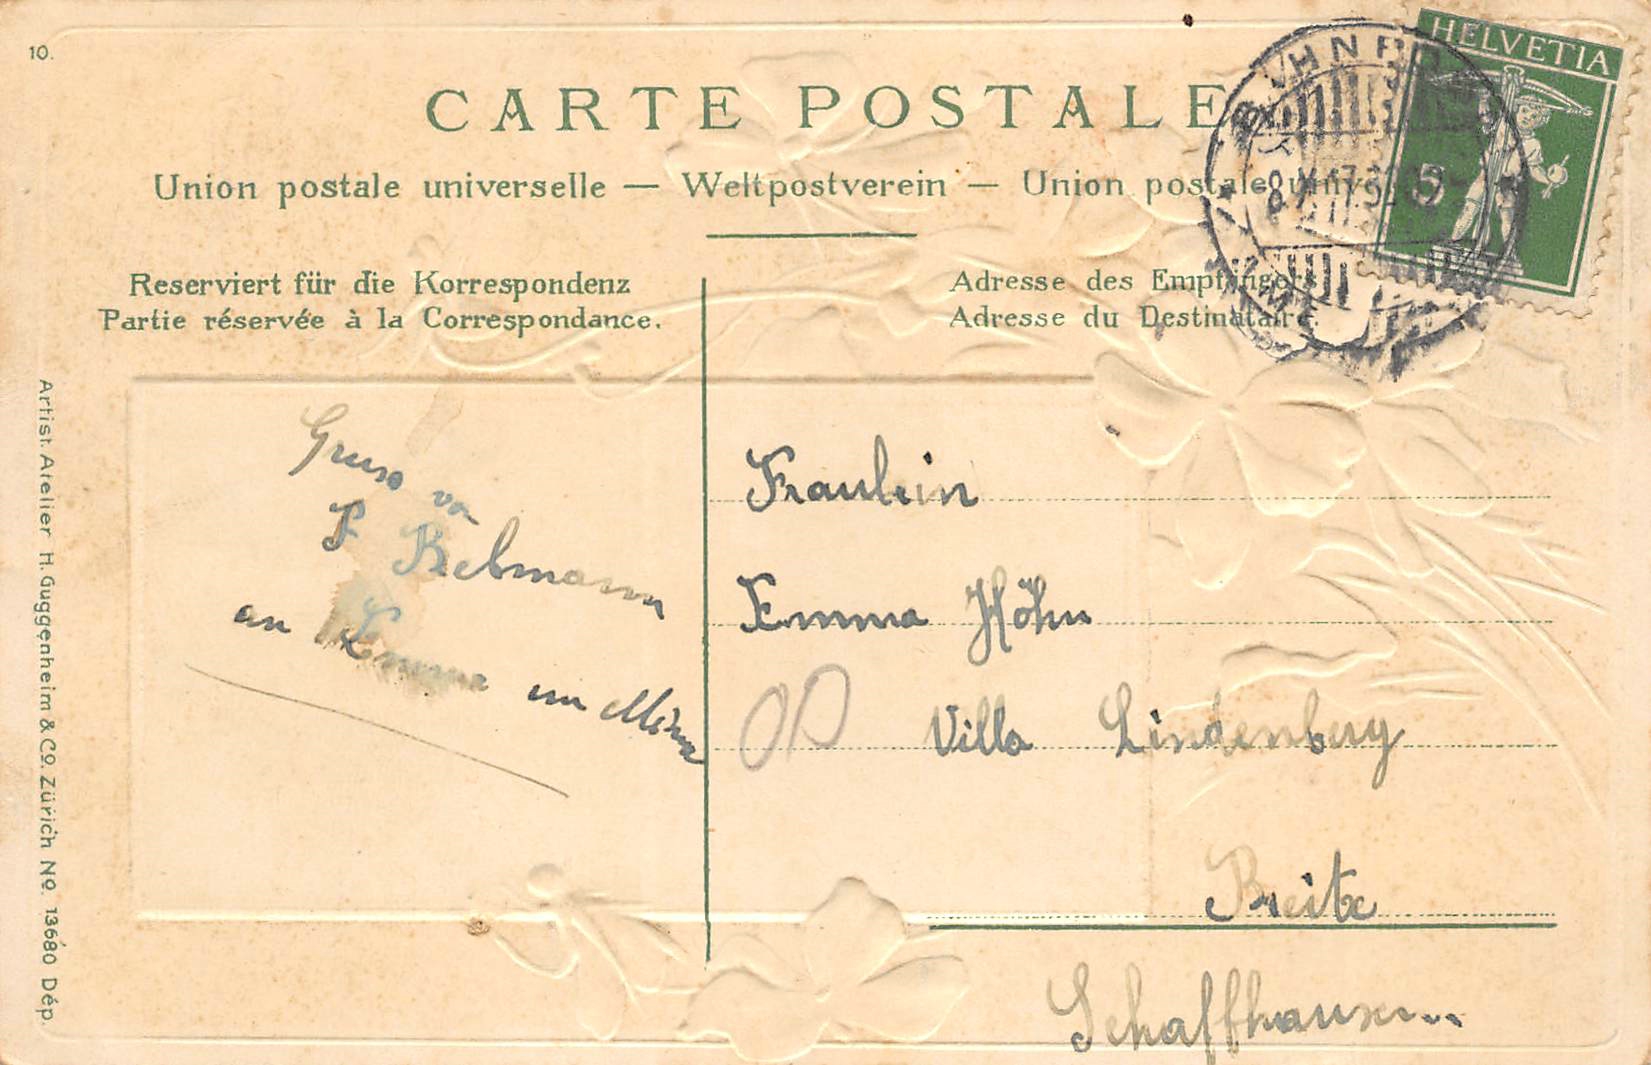 10.
CARTE POSTALE
Union postale universelle — Weltpostverein — Union postale
HELVETIA
5
Reserviert für die Korrespondenz
Partie réservée à la Correspondance.
Adresse des Empfängers
Adresse du Destinataire
Artist. Atelier H. Guggenheim & Co. Zürich No. 13680 Dép.
Gruss von
F Rebmann
an Emma
Fraulein
Emma Höhn
Villa Lindenberg
Breite
Schaffhausen..